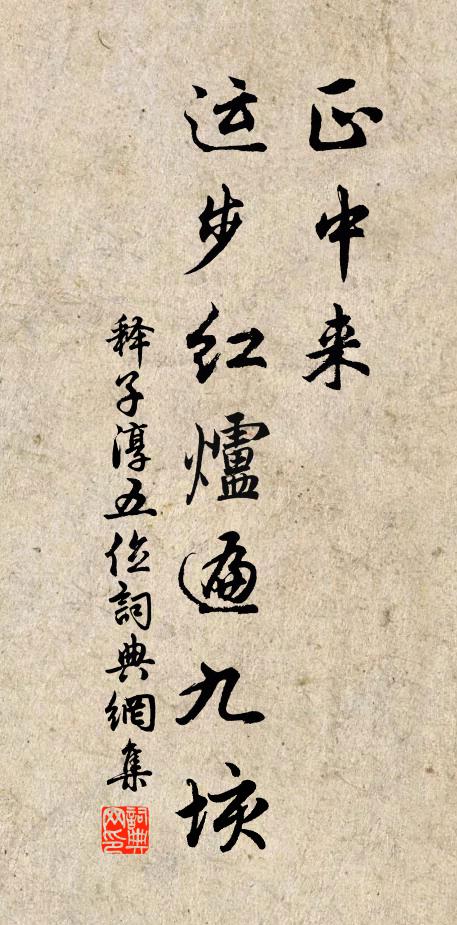 正中来
运步红爐遍九垓
释子淳五位詞典網集
詞典網印